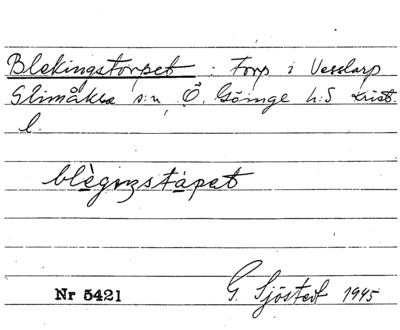 Blekingstorpet : torp i Vesslarp
Glimåkra s:n, Ö. Göinge h:d Krist.
l.
blègɪŋstápət
Nr 5421 G. Sjöstedt 1945